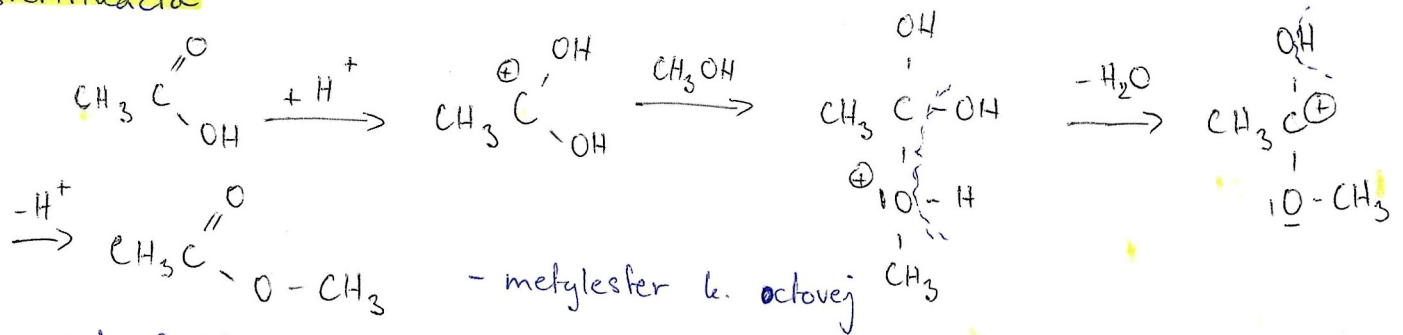 CH3 C =O OH + H+ → CH3 C⊕ OH OH CH3OH → OH CH3 C - OH ⊕ |O - H CH3 - H2O → OH CH3 C⊕ |O - CH3
- H+ → CH3 C =O O - CH3
- metylester k. octovej